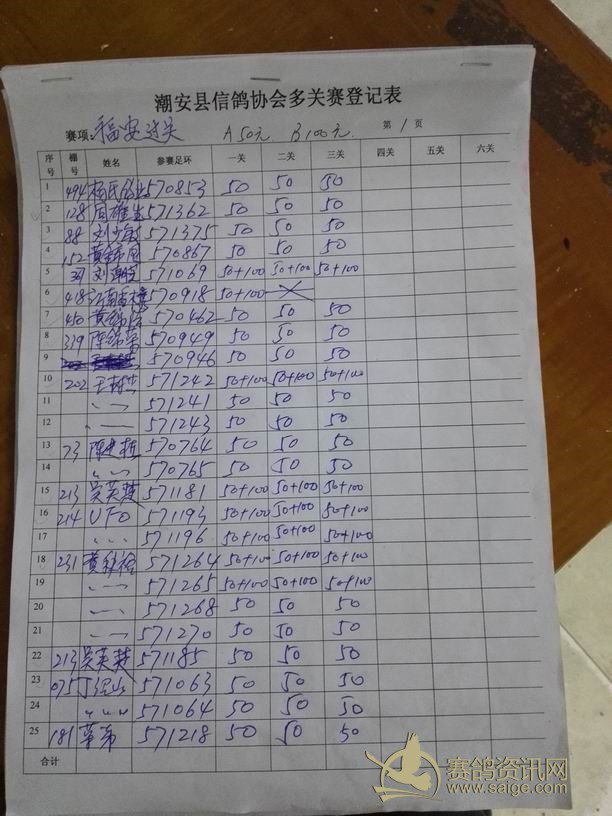 潮安县信鸽协会多关赛登记表
赛项: 福安过关 A 50元. B 100元. 第 1 页
序号 棚号 姓名 参赛足环 一关 二关 三关 四关 五关 六关
1 494 570853 50 50 50
2 128 571362 50 50 50
3 88 571375 50 50 50
4 152 570867 50 50 50
5 571069 50+100 50+100 50+100
6 418 570918 50+100 ×
7 450 570462 50 50 50
8 319 570949 50 50 50
9 570946 50 50 50
10 202 571242 50+100 50+100 50+100
11 571241 50 50 50
12 571243 50 50 50
13 73 570764 50 50 50
14 570765 50 50 50
15 213 571181 50+100 50+100 50+100
16 214 UFO 571193 50+100 50+100 50+100
17 571196 50+100 50+100 50+100
18 231 571264 50+100 50+100 50+100
19 571265 50+100 50+100 50+100
20 571268 50 50 50
21 571270 50 50 50
22 213 571185 50 50 50
23 075 571063 50 50 50
24 571064 50 50 50
25 181 571218 50 50 50
合计
赛鸽资讯网
www.saige.com